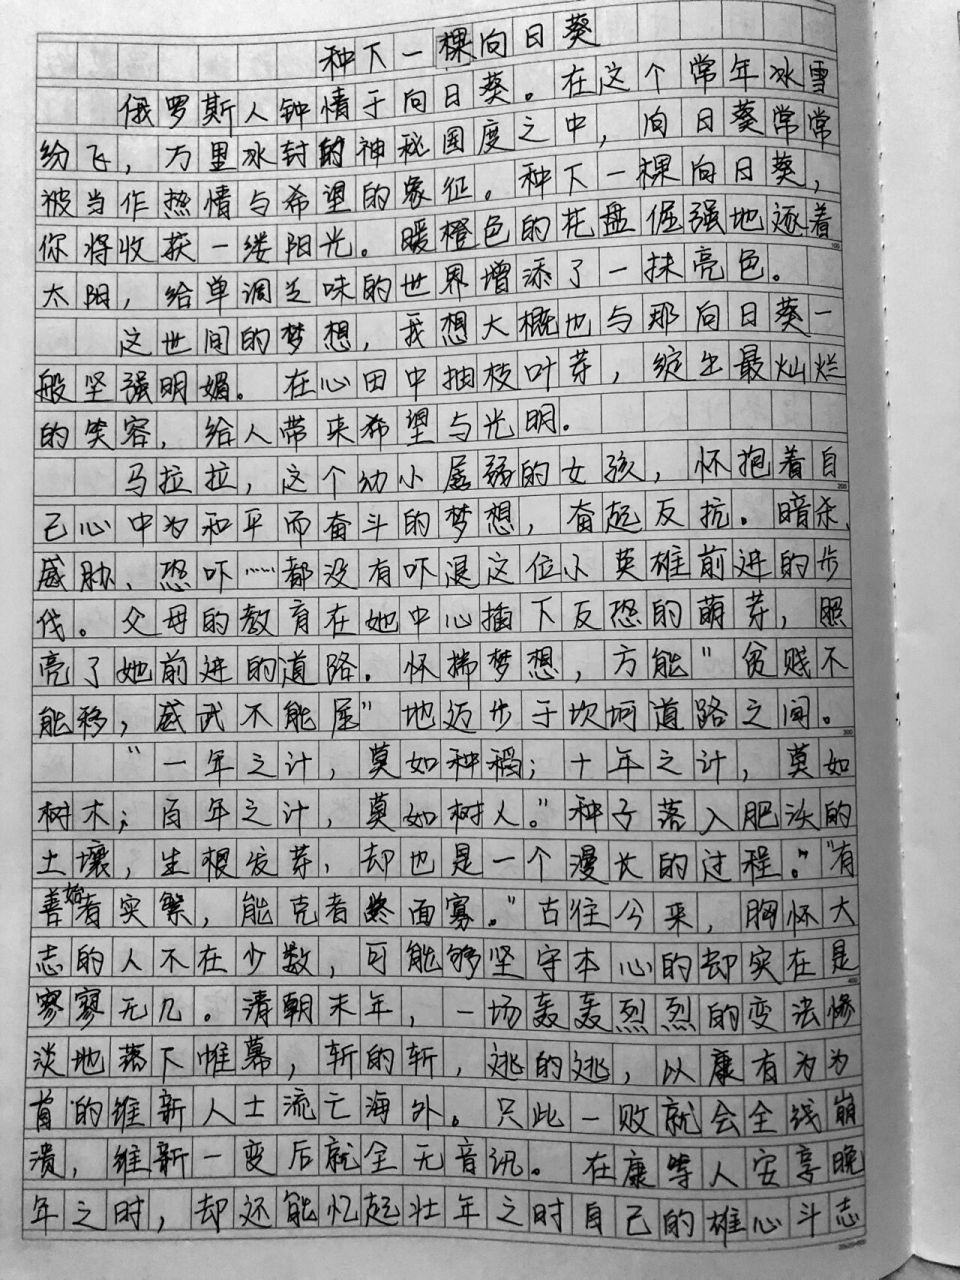 种下一棵向日葵
俄罗斯人钟情于向日葵。在这个常年冰雪
纷飞，万里冰封的神秘国度之中，向日葵常常
被当作热情与希望的象征。种下一棵向日葵，
你将收获一缕阳光。暖橙色的花盘倔强地逐着
太阳，给单调乏味的世界增添了一抹亮色。
这世间的梦想，我想大概也与那向日葵一
般坚强明媚。在心田中抽枝叶芽，绽出最灿烂
的笑容，给人带来希望与光明。
马拉拉，这个幼小孱弱的女孩，怀抱着自
己心中为和平而奋斗的梦想，奋起反抗。暗杀、
威胁、恐吓……都没有吓退这位小英雄前进的步
伐。父母的教育在她中心插下反恐的萌芽，照
亮了她前进的道路。怀揣梦想，方能"贫贱不
能移，威武不能屈"地迈步于坎坷道路之间。
"一年之计，莫如种稻；十年之计，莫如
树木；百年之计，莫如树人。"种子落入肥沃的
土壤，生根发芽，却也是一个漫长的过程。"有
善始者实繁，能克者终面寡。"古往今来，胸怀大
志的人不在少数，可能够坚守本心的却实在是
寥寥无几。清朝末年，一场轰轰烈烈的变法惨
淡地落下帷幕，斩的斩，逃的逃，以康有为为
首的维新人士流亡海外。只此一败就会全线崩
溃，维新一变后就全无音讯。在康等人安享晚
年之时，却还能忆起壮年之时自己的雄心斗志